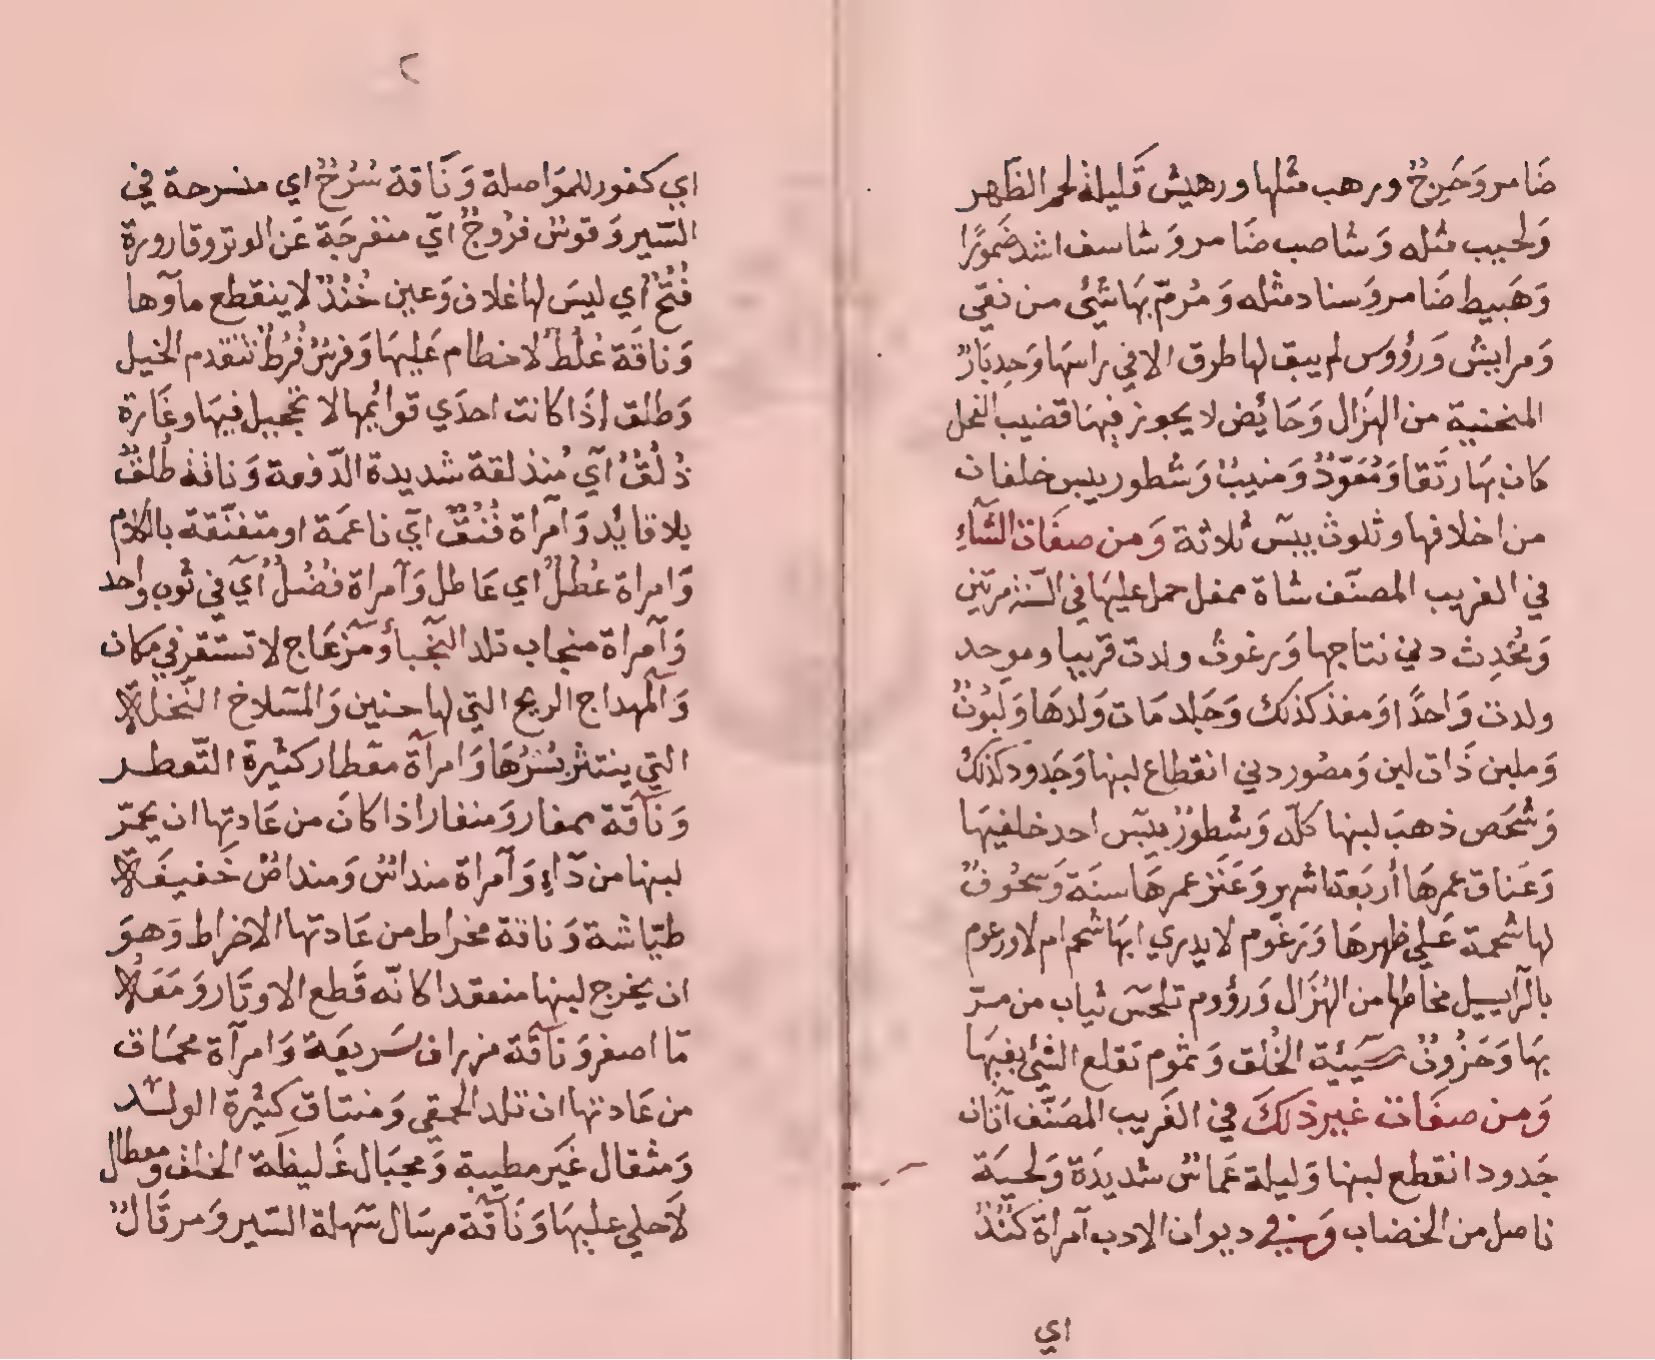 ضَامر وَحَرِجٌ ورهب مثلها ورهيش قَليلة لحم الظَهر
وَلحيب مثله وَشاصب ضَامر وَشاسف اشد ضموُرًا
وَهَبيط ضَامر وَسناد مثله وَمُرمّ بهَا شئ من نقي
وَمرايش وَرؤوس لم يبق لها طرق الا في راسهَا وَحِدبَارٌ
المنحنية من الهزَال وَحَائِض لا يجوز فيهَا قضيب الفحل
كان بهَا رتَقا وَمُعَوّدٌ وَمنيبٌ وَشطور يبس خلفان
من اخلافها وثلوث يبس ثلاثة وَمن صفَات الشآءِ
في الغريب المصنّف شاة ممغل حمل عليهَا في السّنة مرتين
وَمُحْدِث دني نتاجها وَرغوث ولدت قريبا وموحد
ولدت وَاحدًا وَمفذ كذلك وَجَلد مَات وَلدهَا وَلَبُونٌ
وَملبن ذَات لبن وَمصُور دني انقطاع لبنها وَجَدود كذلك
وَشحَص ذهبَ لبنها كلّه وَشطورٌ يبس احد خلفيهَا
وَعَناق عمرهَا أربَعة اشهر وَعَنز عمرهَا سنَة وَسحُوفٌ
لها شحمة عَلي ظهرهَا وَزعُوم لا يدري ابهَا شحم ام لا ورعوم
بالرآ يسيل مخاطها من الهُزَال وَرؤوم تلحس ثياب من مرّ
بهَا وَحَزُونٌ سَيئة الخُلق وَثموم تقلع الشئ بفيهَا
وَمن صفَات غير ذلكَ في الغَريب المصَنّف آتَان
جَدود انقطع لبنها وَليلة عَماسٌ شديدَة وَلحيَة
ناصل من الخضاب وَفي ديوان الادب آمراة كُنُدٌ
اي
٢
اي كفور للموَاصلة وَنَاقة سُرُحٌ اي منسرحة في
السّير وَقوسٌ فرُوجٌ آي منفرجَة عَن الوتر وقارورة
فُتُحٌ أي ليسَ لها غلاف وَعين خُنُدٌ لا ينقطع مآوها
وَناقَة عُلُطٌ لا خطام عَليهَا وَفرسٌ فُرُطٌ تتقدم الخيل
وَطلق إذَا كانت احدَي قوائمها لا تحجيل فيهَا وغَارة
دُلُقٌ آي مُندلقة شديدة الدّفعة وَناقة طُلُقٌ
بلا قائد وَآمراة فُنُقٌ آيّ ناعمَة او متفنّقة بالكلام
وَامراة عُطُلٌ اي عَاطل وَآمراة فضُلٌ آي في ثوب واحد
وَآمراة منجاب تلد النّجَبأ وَمزعَاج لا تستقر في مكان
وَالمهداج الريح التي لها حنين وَالمسلاخ النّخلة
التي ينتثر بُسْرُهَا وَامرآة معطار كثيرَة التّعطر
وَنآقَة ممغار وَمنغار اذا كانَ من عَادتها ان يحمرّ
لبنها من دَآءٍ وَآمراة منداسٌ وَمنداصٌ خَفيفَة
طيّاشة وَناقة مخراط من عَادتها الاخراط وَهوَ
ان يخرج لبنها منعقدا كانّه قَطع الاوتَار وَمَعَهُ
مَا اصفر وَنآقة مزراف سَريعَة وَامرآة محمَاق
من عَادتها ان تلد الحمقي وَمنتاق كثيرَة الولد
وَمثقال غَير مطيبة وَمجبَال غَليظَة الخلق ومعطال
لَا حلي عليهَا وَنَآقَة مرسَال سَهلة السّير وَمرقَالٌ